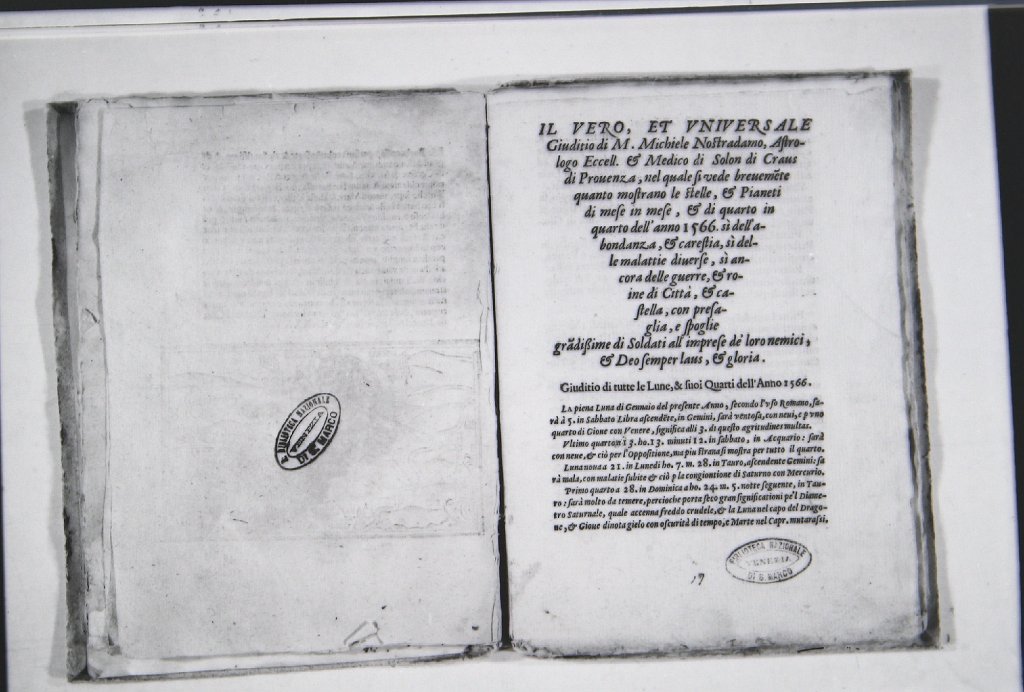 BIBLIOTECA NAZIONALE
DI S. MARCO
IL VERO, ET VNIVERSALE
Giuditio di M. Michiele Nostradamo, Astro-
logo Eccell. & Medico di Solon di Craus
di Prouenza, nel quale si vede breuemẽte
quanto mostrano le stelle, & Pianeti
di mese in mese, & di quarto in
quarto dell'anno 1566. sì dell'a-
bondanza, & carestia, sì del-
le malattie diuerse, sì an-
cora delle guerre, & ro-
ine di Città, & ca-
stella, con presa-
glia, e spoglie
grãdissime di Soldati all'imprese de' loro nemici,
& Deo semper laus, & gloria.
Giuditio di tutte le Lune, & suoi Quarti dell'Anno 1566.
LA piena Luna di Gennaio del presente Anno, secondo l'vso Romano, sa-
rà à 5. in Sabbato Libra ascendẽte, in Gemini, sarà ventosa, con neui, e p vno
quarto di Gioue con Venere, significa alli 3. di questo agritudines multas.
Vltimo quarto à 13. ho. 13. minuti 12. in sabbato, in Acquario: sarà
con neue, & ciò per l'Oppositione, ma piu strana si mostra per tutto il quarto.
Luna noua a 21. in Lunedi ho. 7. m. 28. in Tauro, ascendente Gemini: sa
rà mala, con malatie subite & ciò p la congiontione di Saturno con Mercurio.
Primo quarto a 28. in Dominica a ho. 24. m. 5. notte seguente, in Tau-
ro: sarà molto da temere, percioche porta seco gran significationi pe'l Diame-
tro Saturnale, quale accenna freddo crudele, & la Luna nel capo del Drago-
ne, & Gioue dinota gielo con oscurità di tempo, e Marte nel Capr. mutarassi.
BIBLIOTECA NAZIONALE
VENEZIA
DI S. MARCO
17